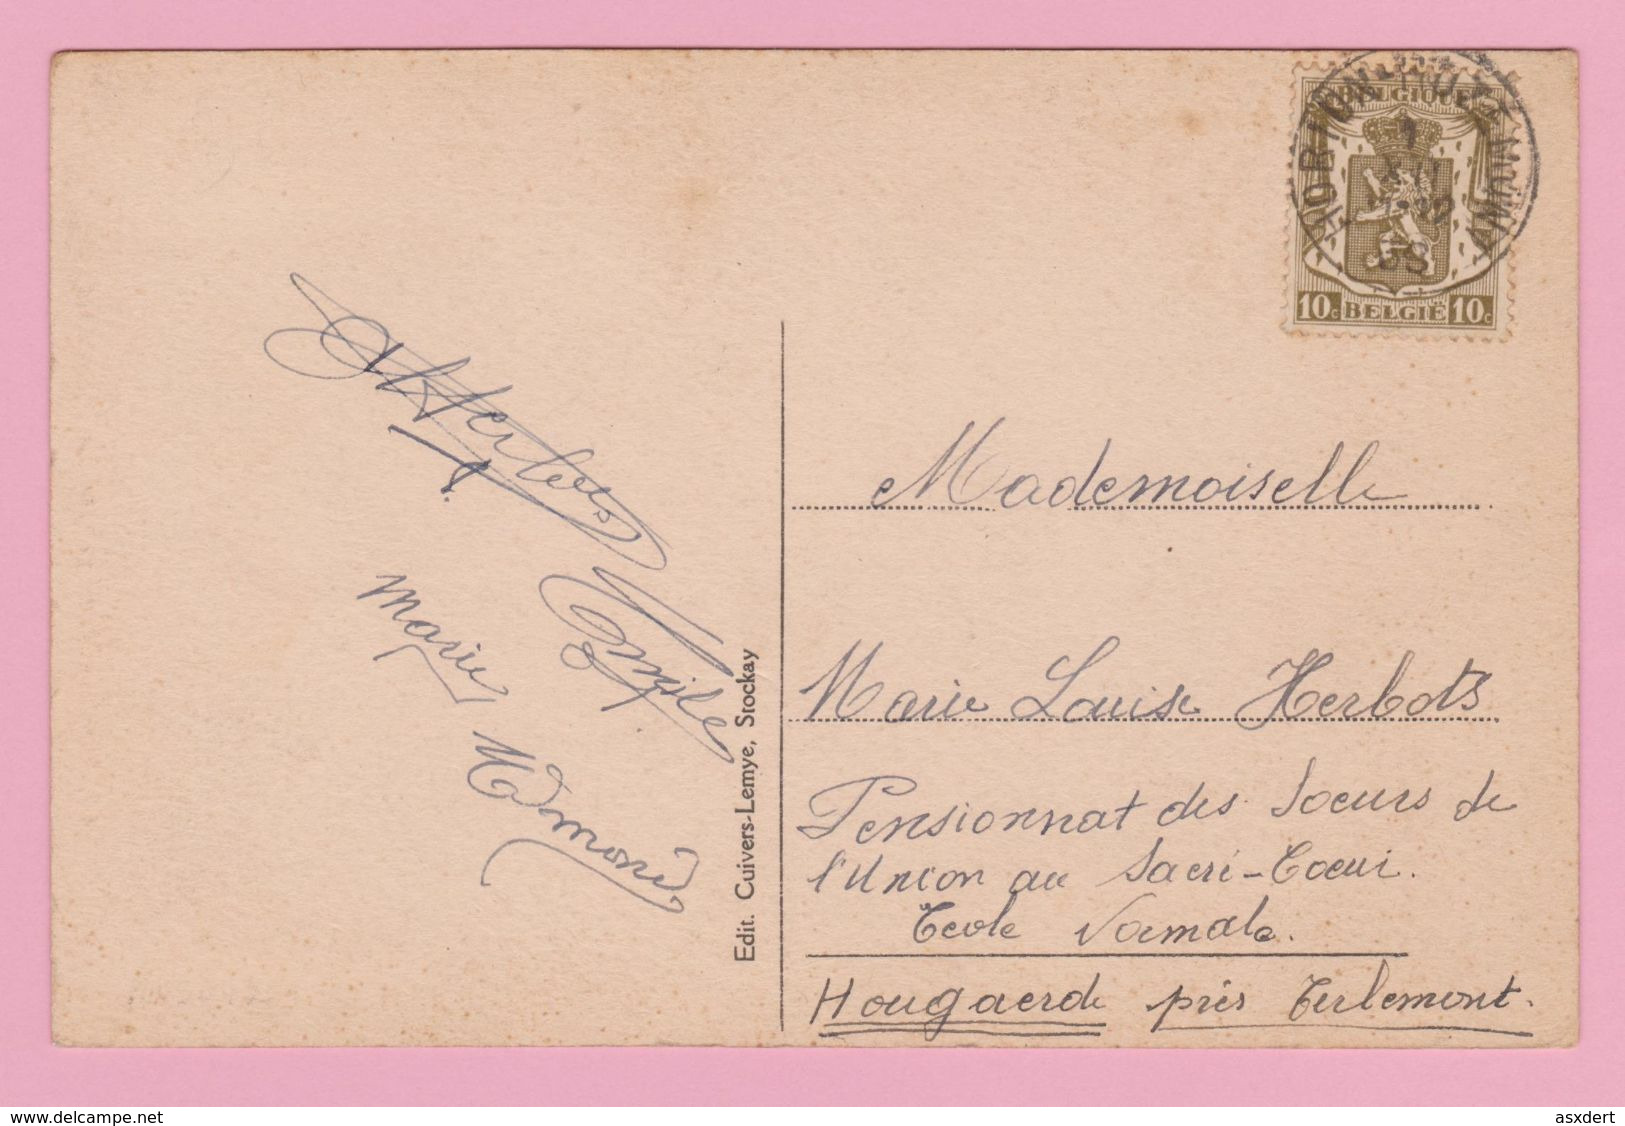 BELGIQUE
10c BELGIË 10c
HORION-HOZÉMONT
Herbots
Emile
Marie
Edmond
Edit. Cuivers-Lemye, Stockay
Mademoiselle
Marie Louise Herbots
Pensionnat des Soeurs de
l'Union au Sacré-Coeur.
Ecole Normale.
Hougaerde près Tirlemont.
www.delcampe.net
asxdert